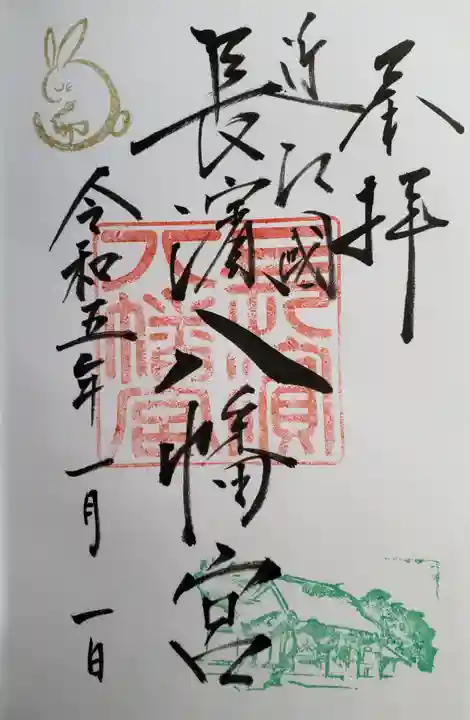 奉拝
近江國
長濱八幡宮
令和五年一月一日
長濱
八幡宮
卯